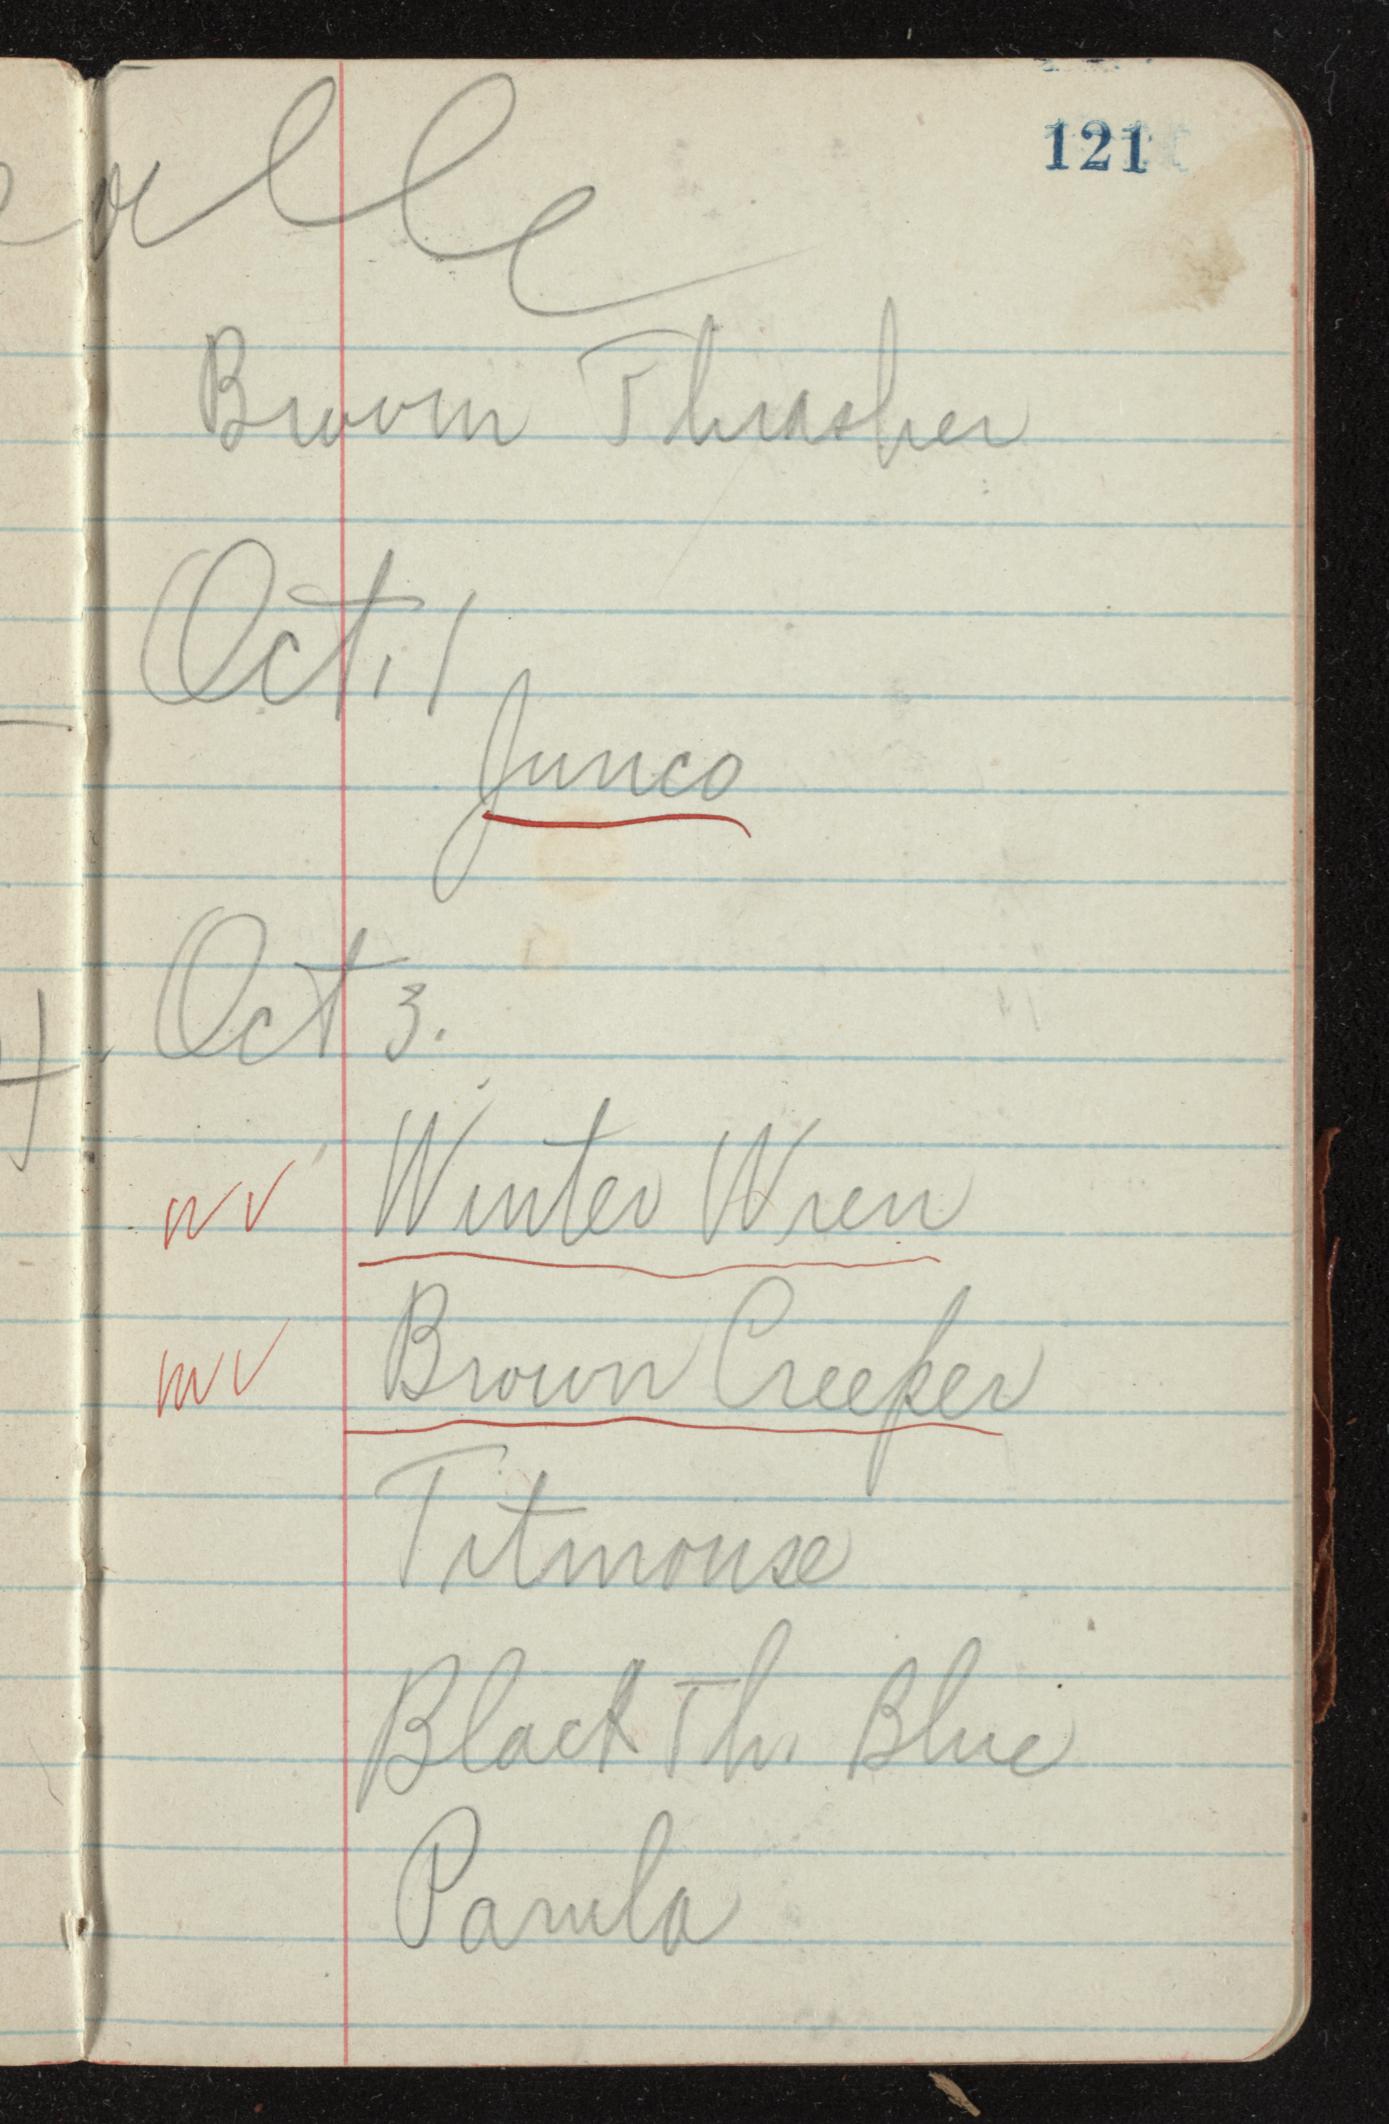 121
Brown Thrasher
Oct. 1
Junco
Oct 3.
Winter Wren
Brown Creeper
Titmouse
Black Th. Blue
Parula